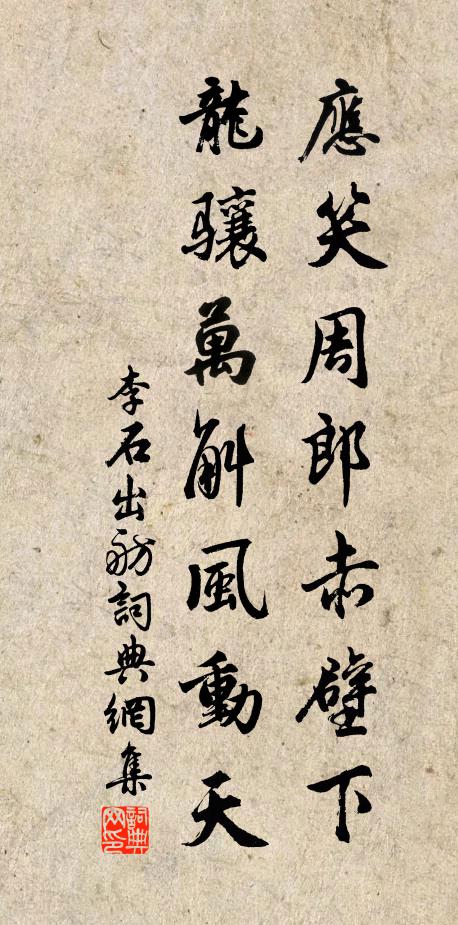 應笑周郎赤壁下
龍驤萬斛風動天
李石出舫詞典網集
詞典網印